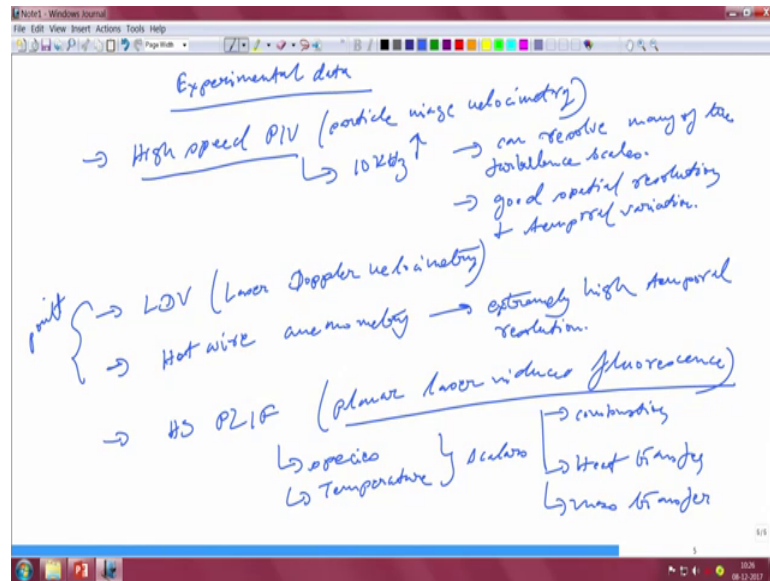 Note1 - Windows Journal
File Edit View Insert Actions Tools Help
Page Width
Experimental data
→ High speed PIV (particle image velocimetry)
↳ 10 kHz ↑ → can resolve many of the turbulence scales.
→ good spatial resolution + temporal variation.
point { → LDV (Laser Doppler velocimetry)
→ Hot wire anemometry → extremely high temporal resolution.
→ HS PLIF (planar laser induced fluorescence)
↳ species
↳ Temperature } scalars
→ combustion
→ Heat transfer
↳ mass transfer
5/5
5
10:26
08-12-2017